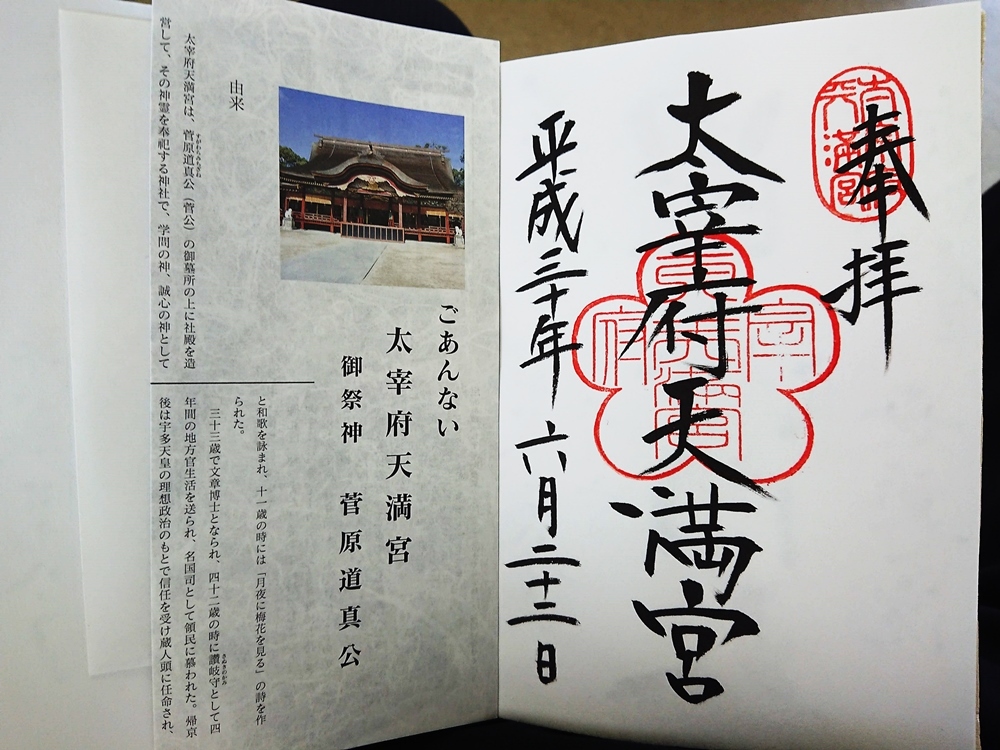 奉拝
太宰府天満宮
平成三十年 六月二十二日
ごあんない
太宰府天満宮
御祭神 菅原道真公
由来
すがわらみちざね
太宰府天満宮は、菅原道真公（菅公）の御墓所の上に社殿を造
営して、その神霊を奉祀する神社で、学問の神、誠心の神として
と和歌を詠まれ、十一歳の時には「月夜に梅花を見る」の詩を作
られた。
さぬきのかみ
三十三歳で文章博士となられ、四十二歳の時に讃岐守として四
年間の地方官生活を送られ、名国司として領民に慕われた。帰京
後は宇多天皇の理想政治のもとで信任を受け蔵人頭に任命され、